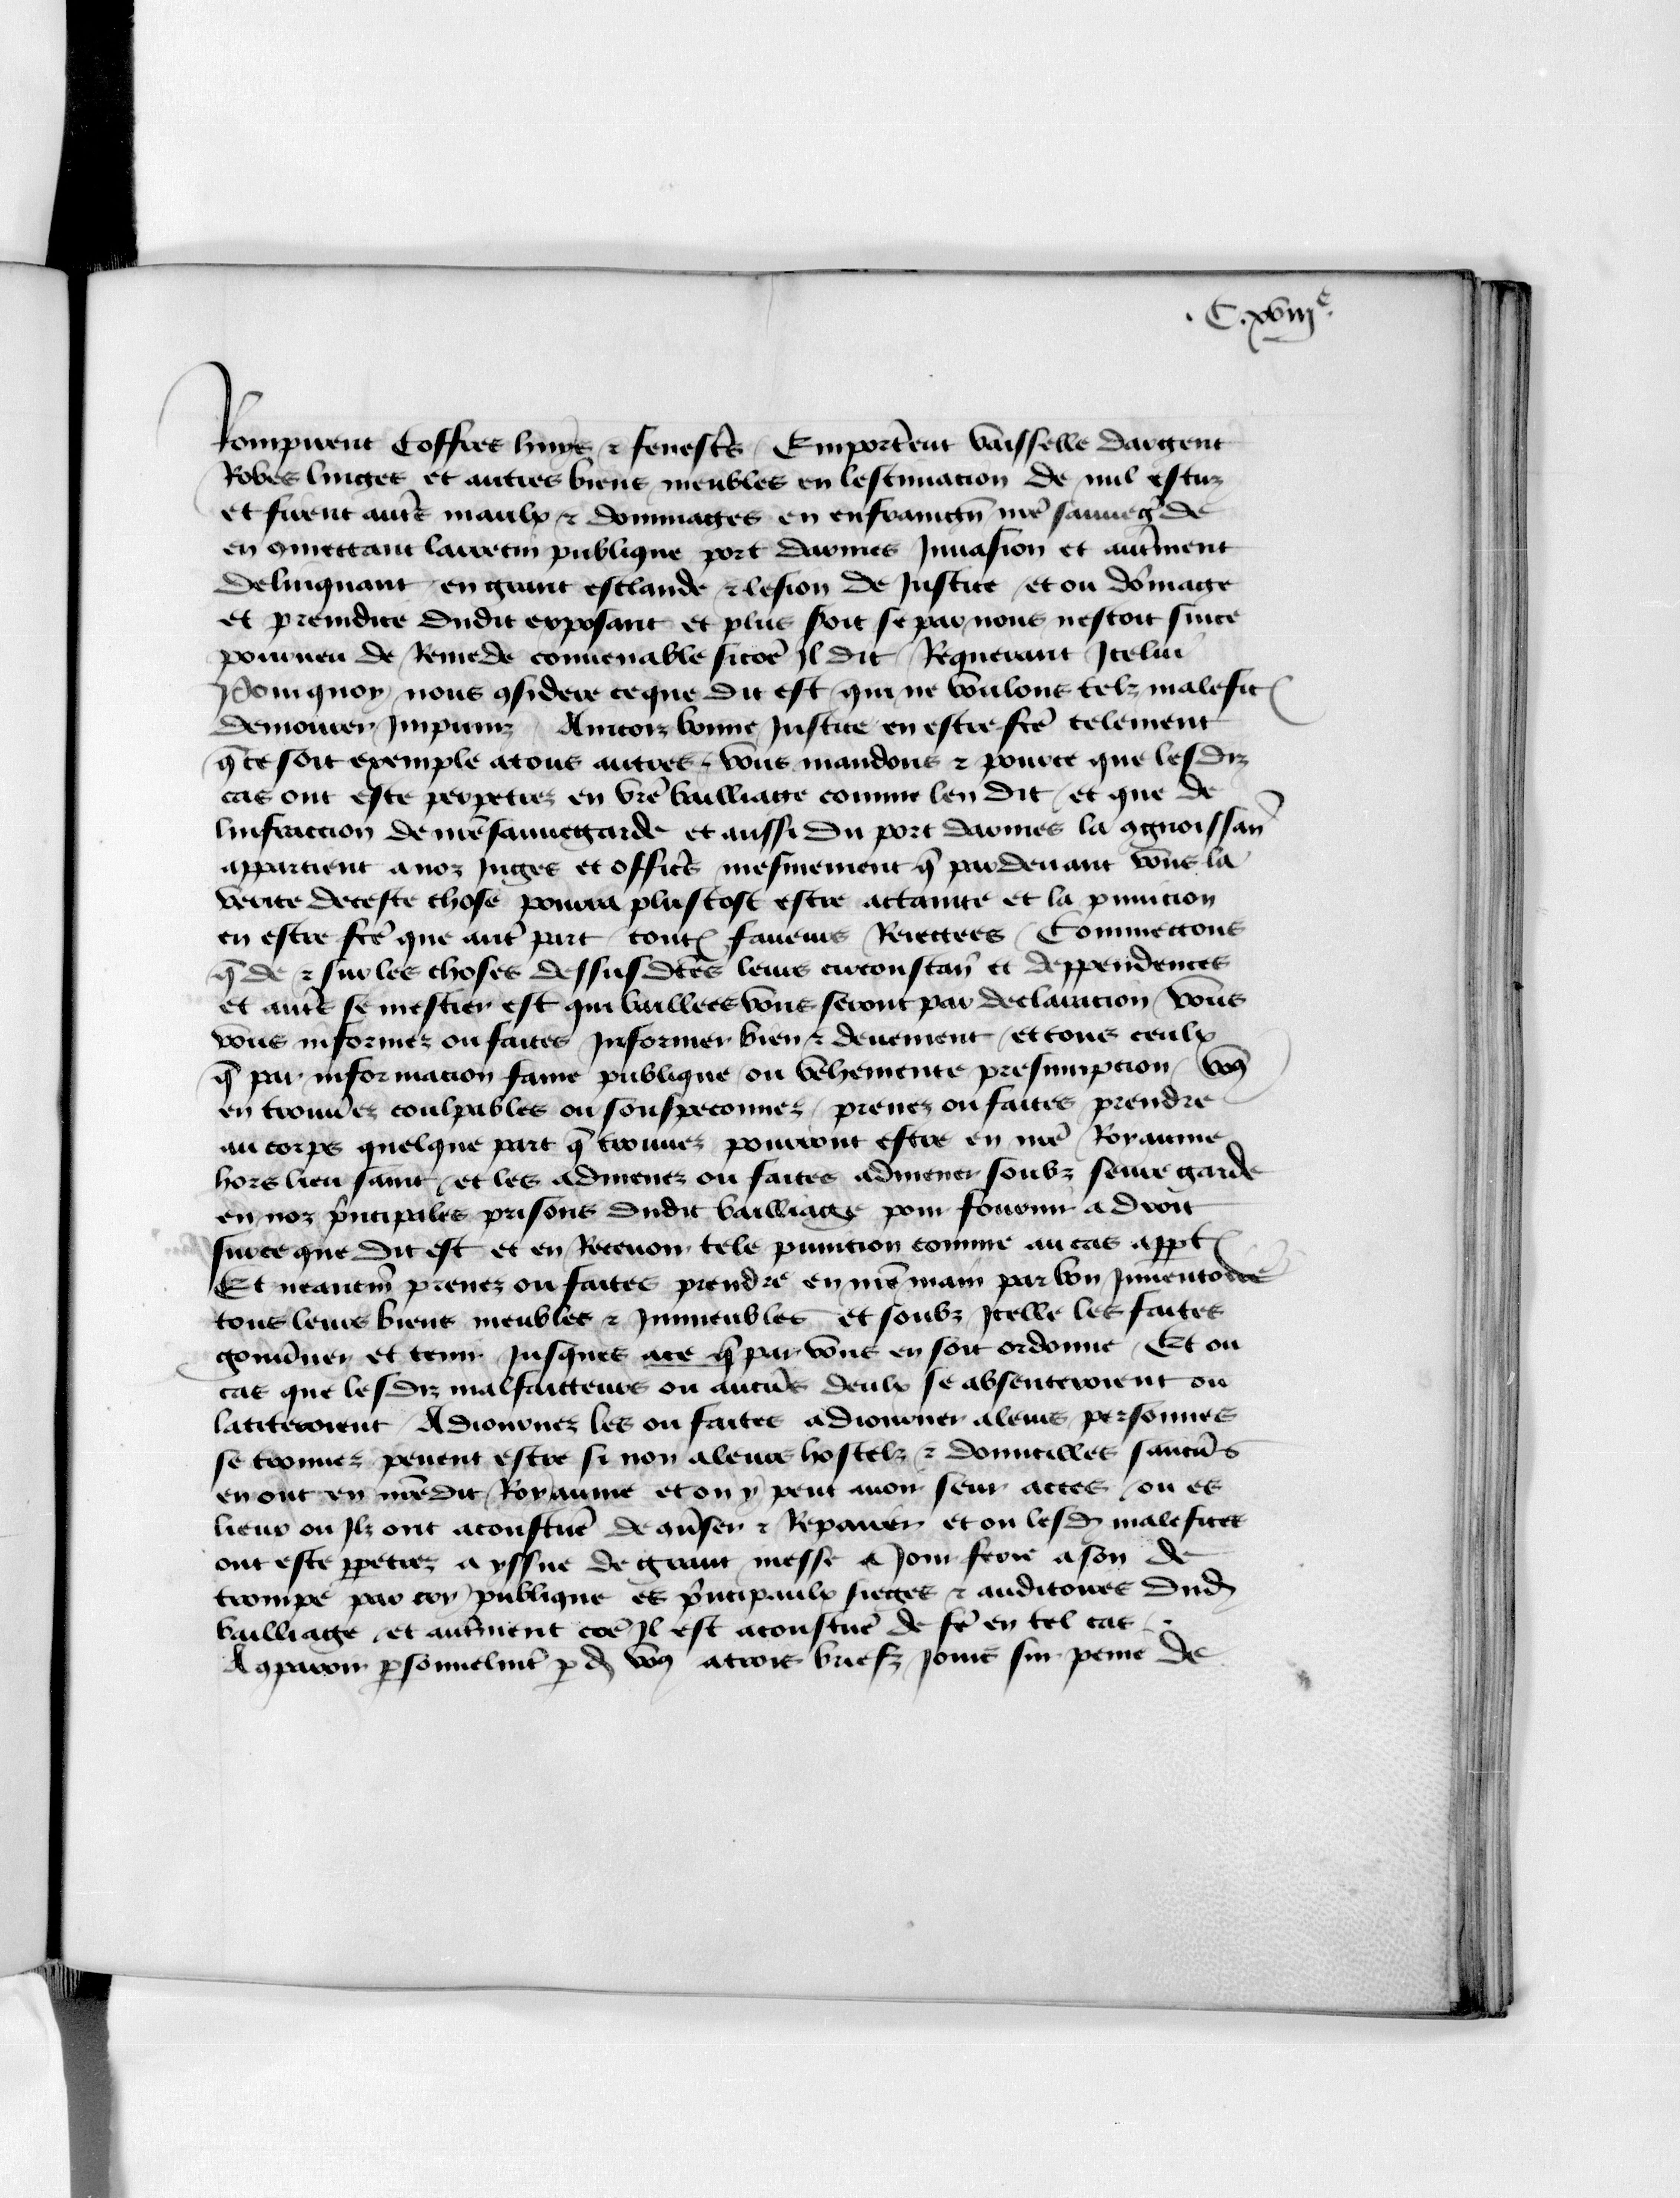 .C.xviij^e.
Rompirent Coffres huys ⁊ fenestr̃s / Emportẽent vaisselle dargent
Robes linges et autres biens meubles en lestimacion de mil escuz
et firent autr̃s maulx ⁊ dommages en enfraign̄ nr̃e sauueg̃de
en ꝯmettant larrecin publique port darmes Inuasion et autr̃ment
delinquant / en grant esclande ⁊ lesion de Justice / et ou dõmage
et preiudice dudit exposant et plus soit se par nous nestoit sur ce
pourueu de Remede conuenable sicõe Il dit / Requerant Icelui
Pourquoy nous ꝯsidere ceque dit est qui ne voulons telz malefic̃
demourer Impuniz / Aincoiz bonne Justice en estre fc̃e telement
q̃ ce soit exemple atous autres / vous mandons ⁊ pource que lesdiz
cas ont este perpetrez en vr̃e bailliage comme len dit / et que de
linfraccion de nr̃e sauuegarde et aussi du port darmes la ꝯgnoissan̄
appartient a noz Juges et offic̃rs mesmement q̃ pardeuant vous la
verite deceste chose pourra plustost estre actainte et la punicion
en estre fc̃e que autr̃ part / toutes faueurs Reiettees / Commettons
q̃ de ⁊ sur les choses dessusdc̃es leurs circonstan̄ et deppendences
et autr̃s se mestier est qui baillees vous seront par declaracion / vous
vous informez ou faites Informer bien ⁊ deuement / et tous ceulx
q̃ par informacion fame publique ou vehemente presumpcion / vo9
en trouuer̃ez coulpables ou souspeconnez / prenez ou faites prendre
au corps quelque part q̃ trouuez pourront estre en nr̃e Royaume
hors lieu saint / et les admenez ou faites admener soubz seure garde
en noz p̃ncipales prisons dudit bailliage pour fournir a droit
sur ce que dit est et en Receuoir tele punicion comme au cas apꝑt̃
Et neantm̃ prenez ou faites prendre en nr̃e main par bon Jnuentoire
tous leurs biens meubles ⁊ Immeubles et soubz Icelle les faites
gouũner et tenir Jusques ace q̃ par vous en soit ordonne / Et ou
cas que lesdiz malfaitteurs ou aucũs deulx se absenteroient ou
latiteroient / Adiournez les ou faites adiourner aleurs personnes
se trouuez peuent estre si non aleurs hostelz ⁊ domicilles saucũs
en ont en nr̃edit Royaume et on y peut auoir seur acces / ou es
lieux ou Ilz ont acoustume de ꝯũser ⁊ Repairer et ou lesd̃ malefices
ont este ꝑpetrez a yssue de grant messe a Jour ferie a son de
trompe par cry publique es p̃ncipaulx sieges ⁊ auditoires dud̃
bailliage / et autr̃ment cõe Il est acoustume de fr̃e en tel cas
Aꝯparoir ꝑsonnelmt̃ ꝑ d̃ vo9 atrois briefz Jours sur peine de